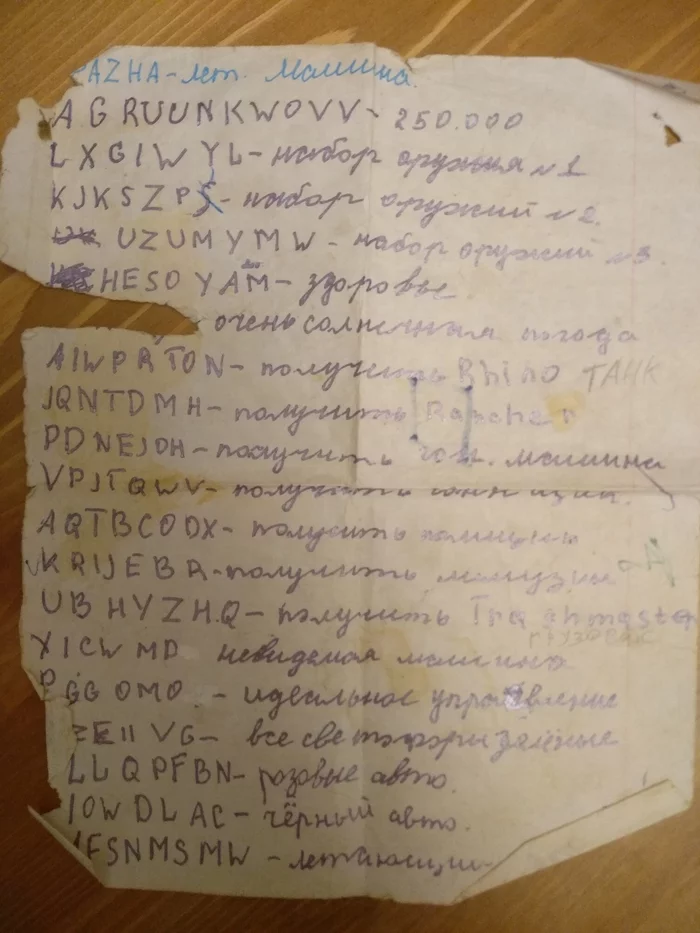 AZHA - лет. Машина.
AGRUUNKWOVV - 250.000
LXGIWYL - набор оружия №1
KJKSZPS - набор оружий №2.
UZUMYMW - набор оружий №3.
HESOYAM - здоровье
очень солнечная погода
AIWPRTON - получить Rhino ТАНК
JQNTDMH - получить Rancher
PDNEJOH - получить гон. машина
VPJTQWV - получить
AQTBCODX - получить
KRIJEBR - получить
UBHYZHQ - получить Trashmaster
грузовик
XICWMD невидемая машина
PGGOMO - идеальное управление
ZEIIVG - все светофоры зелёные
LLQPFBN - розовые авто.
IOWDLAC - чёрный авто.
IFSNMSMW - летающий